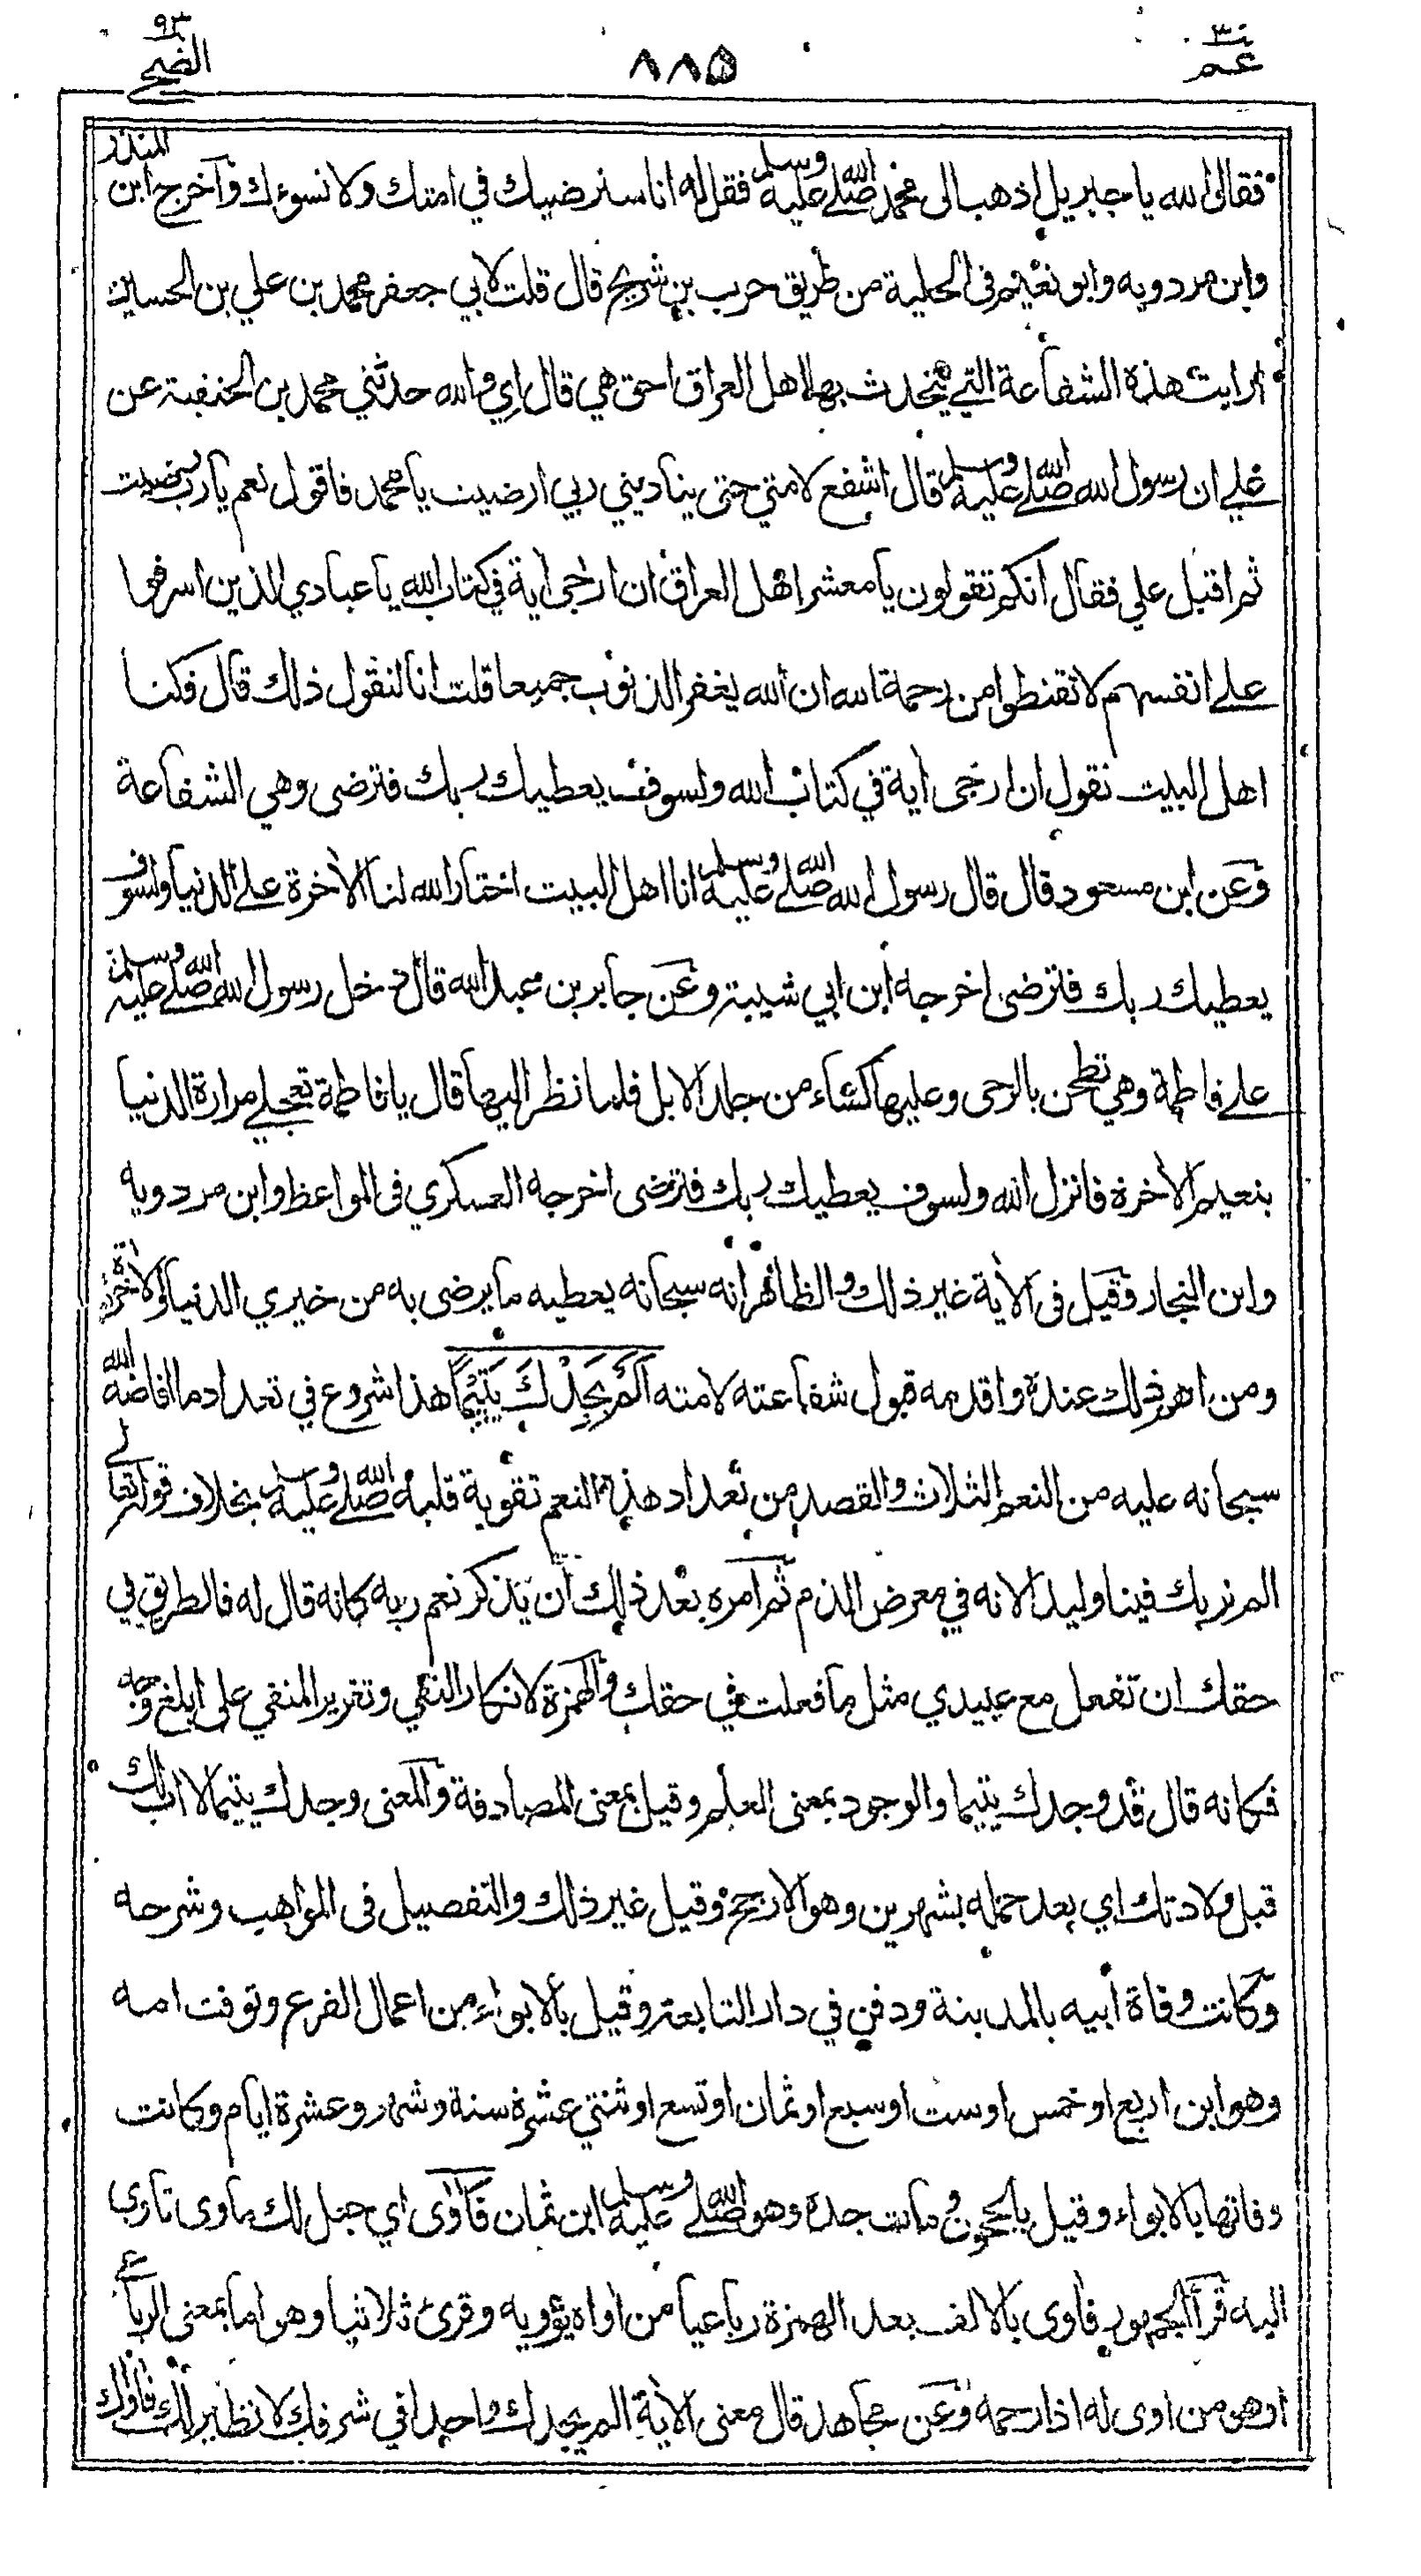 عم ٣٠
٨٨٥
الضحى ٩٣
فقال الله يا جبريل اذهب الى محمد صلى الله عليه وسلم فقل له انا سنرضيك في امتك ولا نسوءك وأخرج ابن المنذر
وابن مردويه وابو نعيم فى الحلية من طريق حرب بن شريح قال قلت لابي جعفر محمد بن علي بن الحسين
ارايت هذه الشفاعة التي يتحدث بها اهل العراق احق هي قال اي والله حدثني محمد بن الحنفية عن
علي ان رسول الله صلى الله عليه وسلم قال اشفع لامتي حتى يناديني ربي ارضيت يا محمد فاقول نعم يا رب رضيت
ثم اقبل علي فقال انكم تقولون يا معشر اهل العراق ان ارجى اية في كتاب الله يا عبادي الذين اسرفوا
على انفسهم لا تقنطوا من رحمة الله ان الله يغفر الذنوب جميعا قلت انا لنقول ذلك قال فكلنا
اهل البيت نقول ان ارجى اية في كتاب الله ولسوف يعطيك ربك فترضى وهي الشفاعة
وعن ابن مسعود قال قال رسول الله صلى الله عليه وسلم انا اهل البيت اختار الله لنا الاخرة على الدنيا ولسوف
يعطيك ربك فترضى اخرجه ابن ابي شيبة وعن جابر بن عبد الله قال دخل رسول الله صلى الله عليه وسلم
على فاطمة وهي تطحن بالرحى وعليها كساء من جلد الابل فلما نظر اليها قال يا فاطمة تعجلي مرارة الدنيا
بنعيم الأخرة فانزل الله ولسوف يعطيك ربك فترضى اخرجه العسكري فى المواعظ وابن مردويه
وابن النجار وقيل فى الأية غير ذلك والظاهر انه سبحانه يعطيه ما يرضى به من خيري الدنيا والأخرة
ومن اهم ذلك عنده واقدمه قبول شفاعته لامته اَلَمْ يَجِدْكَ يَتِيْمًا هذا شروع في تعداد ما افاضه الله
سبحانه عليه من النعم الثلاث والقصد من تعداد هذه النعم تقوية قلبه صلى الله عليه وسلم بخلاف قوله تعالى
الم نربك فينا وليدا لانه في معرض الذم ثم امره بعد ذلك ان يذكر نعم ربه كانه قال له فالطريق في
حقك ان تفعل مع عبيدي مثل ما فعلت في حقك والهمزة لانكار النفي وتقرير المنفي على ابلغ وجه
فكانه قال قد وجدك يتيما والوجود بمعنى العلم وقيل بمعنى المصادفة والمعنى وجدك يتيما لا اب لك
قبل ولادتك اي بعد حمله بشهرين وهو الارجح وقيل غير ذلك والتفصيل فى المواهب وشرحه
وكانت وفاة أبيه بالمدينة ودفن في دار التابعة وقيل بالابواء من اعمال الفرع وتوفت امه
وهو ابن اربع او خمس او ست او سبع او ثمان او تسع او ثنتي عشرة سنة وشهر وعشرة ايام وكانت
وفاتها بالابواء وقيل بالحجون ومات جده وهو صلى الله عليه وسلم ابن ثمان فَآوٰى اي جعل لك ماوى تاوي
اليه قرأ الجمهور فأوى بالالف بعد الهمزة رباعيا من اواه يؤويه وقرئ ثلاثيا وهو اما بمعنى الرباعي
او هو من اوى له اذا رحمه وعن مجاهد قال معنى الأية الم يجدك واحدا في شرفك لا نظير لك فأواك